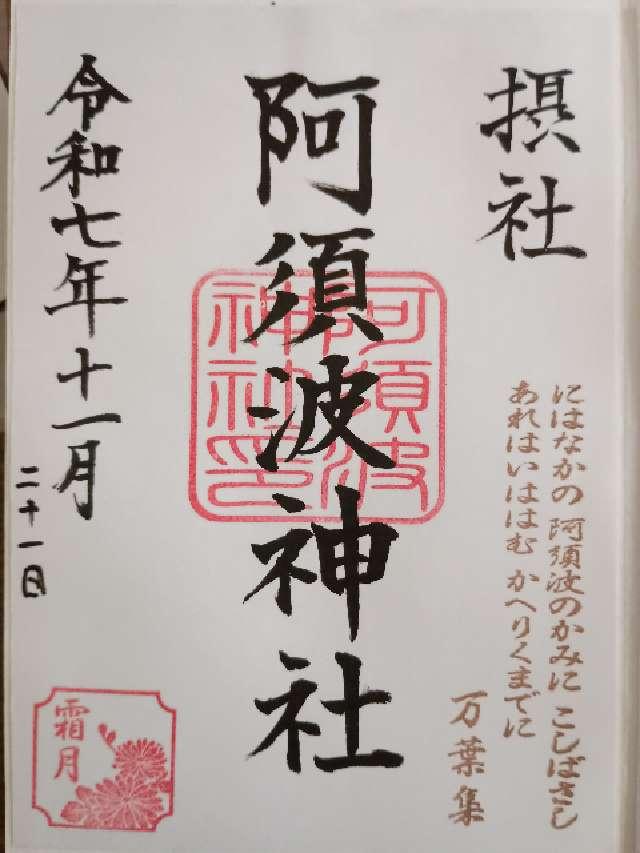 摂社
にはなかの 阿須波のかみに こしばさし
あれはいははむ かへりくまでに
万葉集
阿須波神社
阿須波
神社印
令和七年十一月
二十一日
霜月